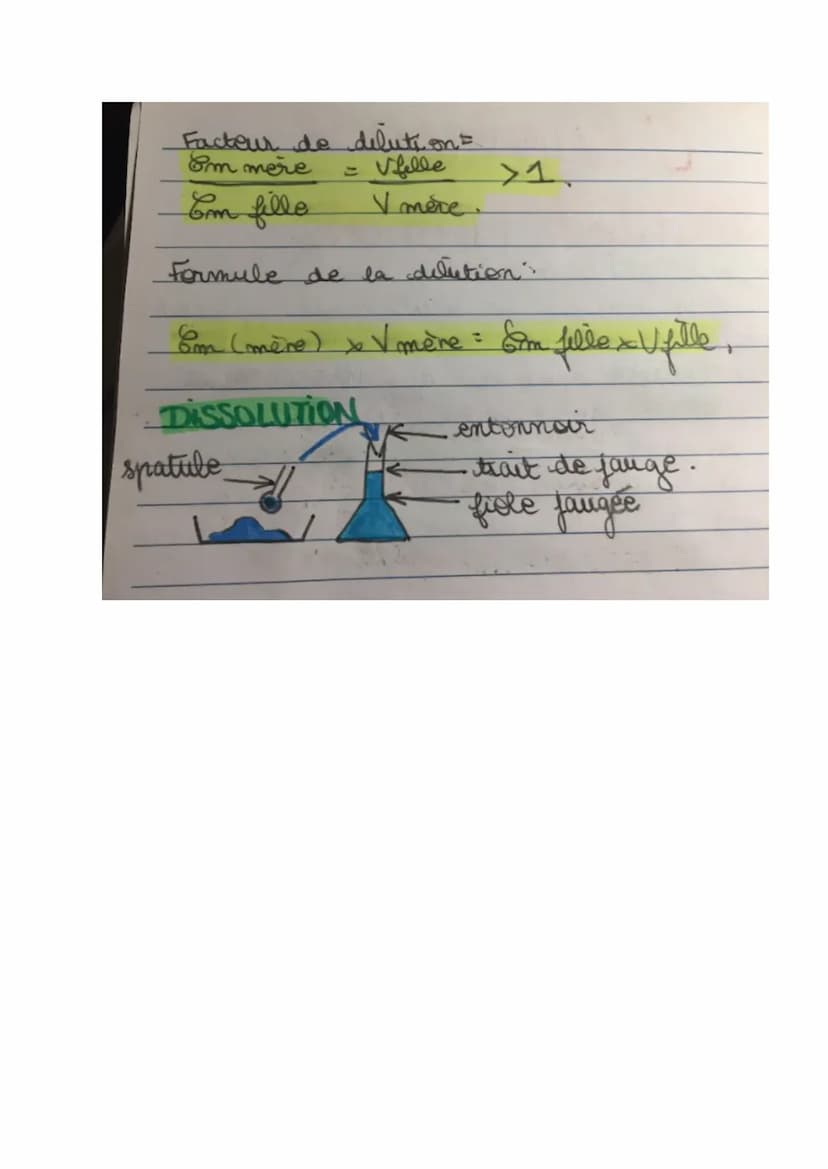 Facteur de dilution =
Cm mère = V fille > 1.
Cm fille V mère.
Formule de la dilution :
Cm (mère) x V mère = Cm fille x V fille.
DISSOLUTION
entonnoir
spatule
trait de jauge.
fiole jaugée